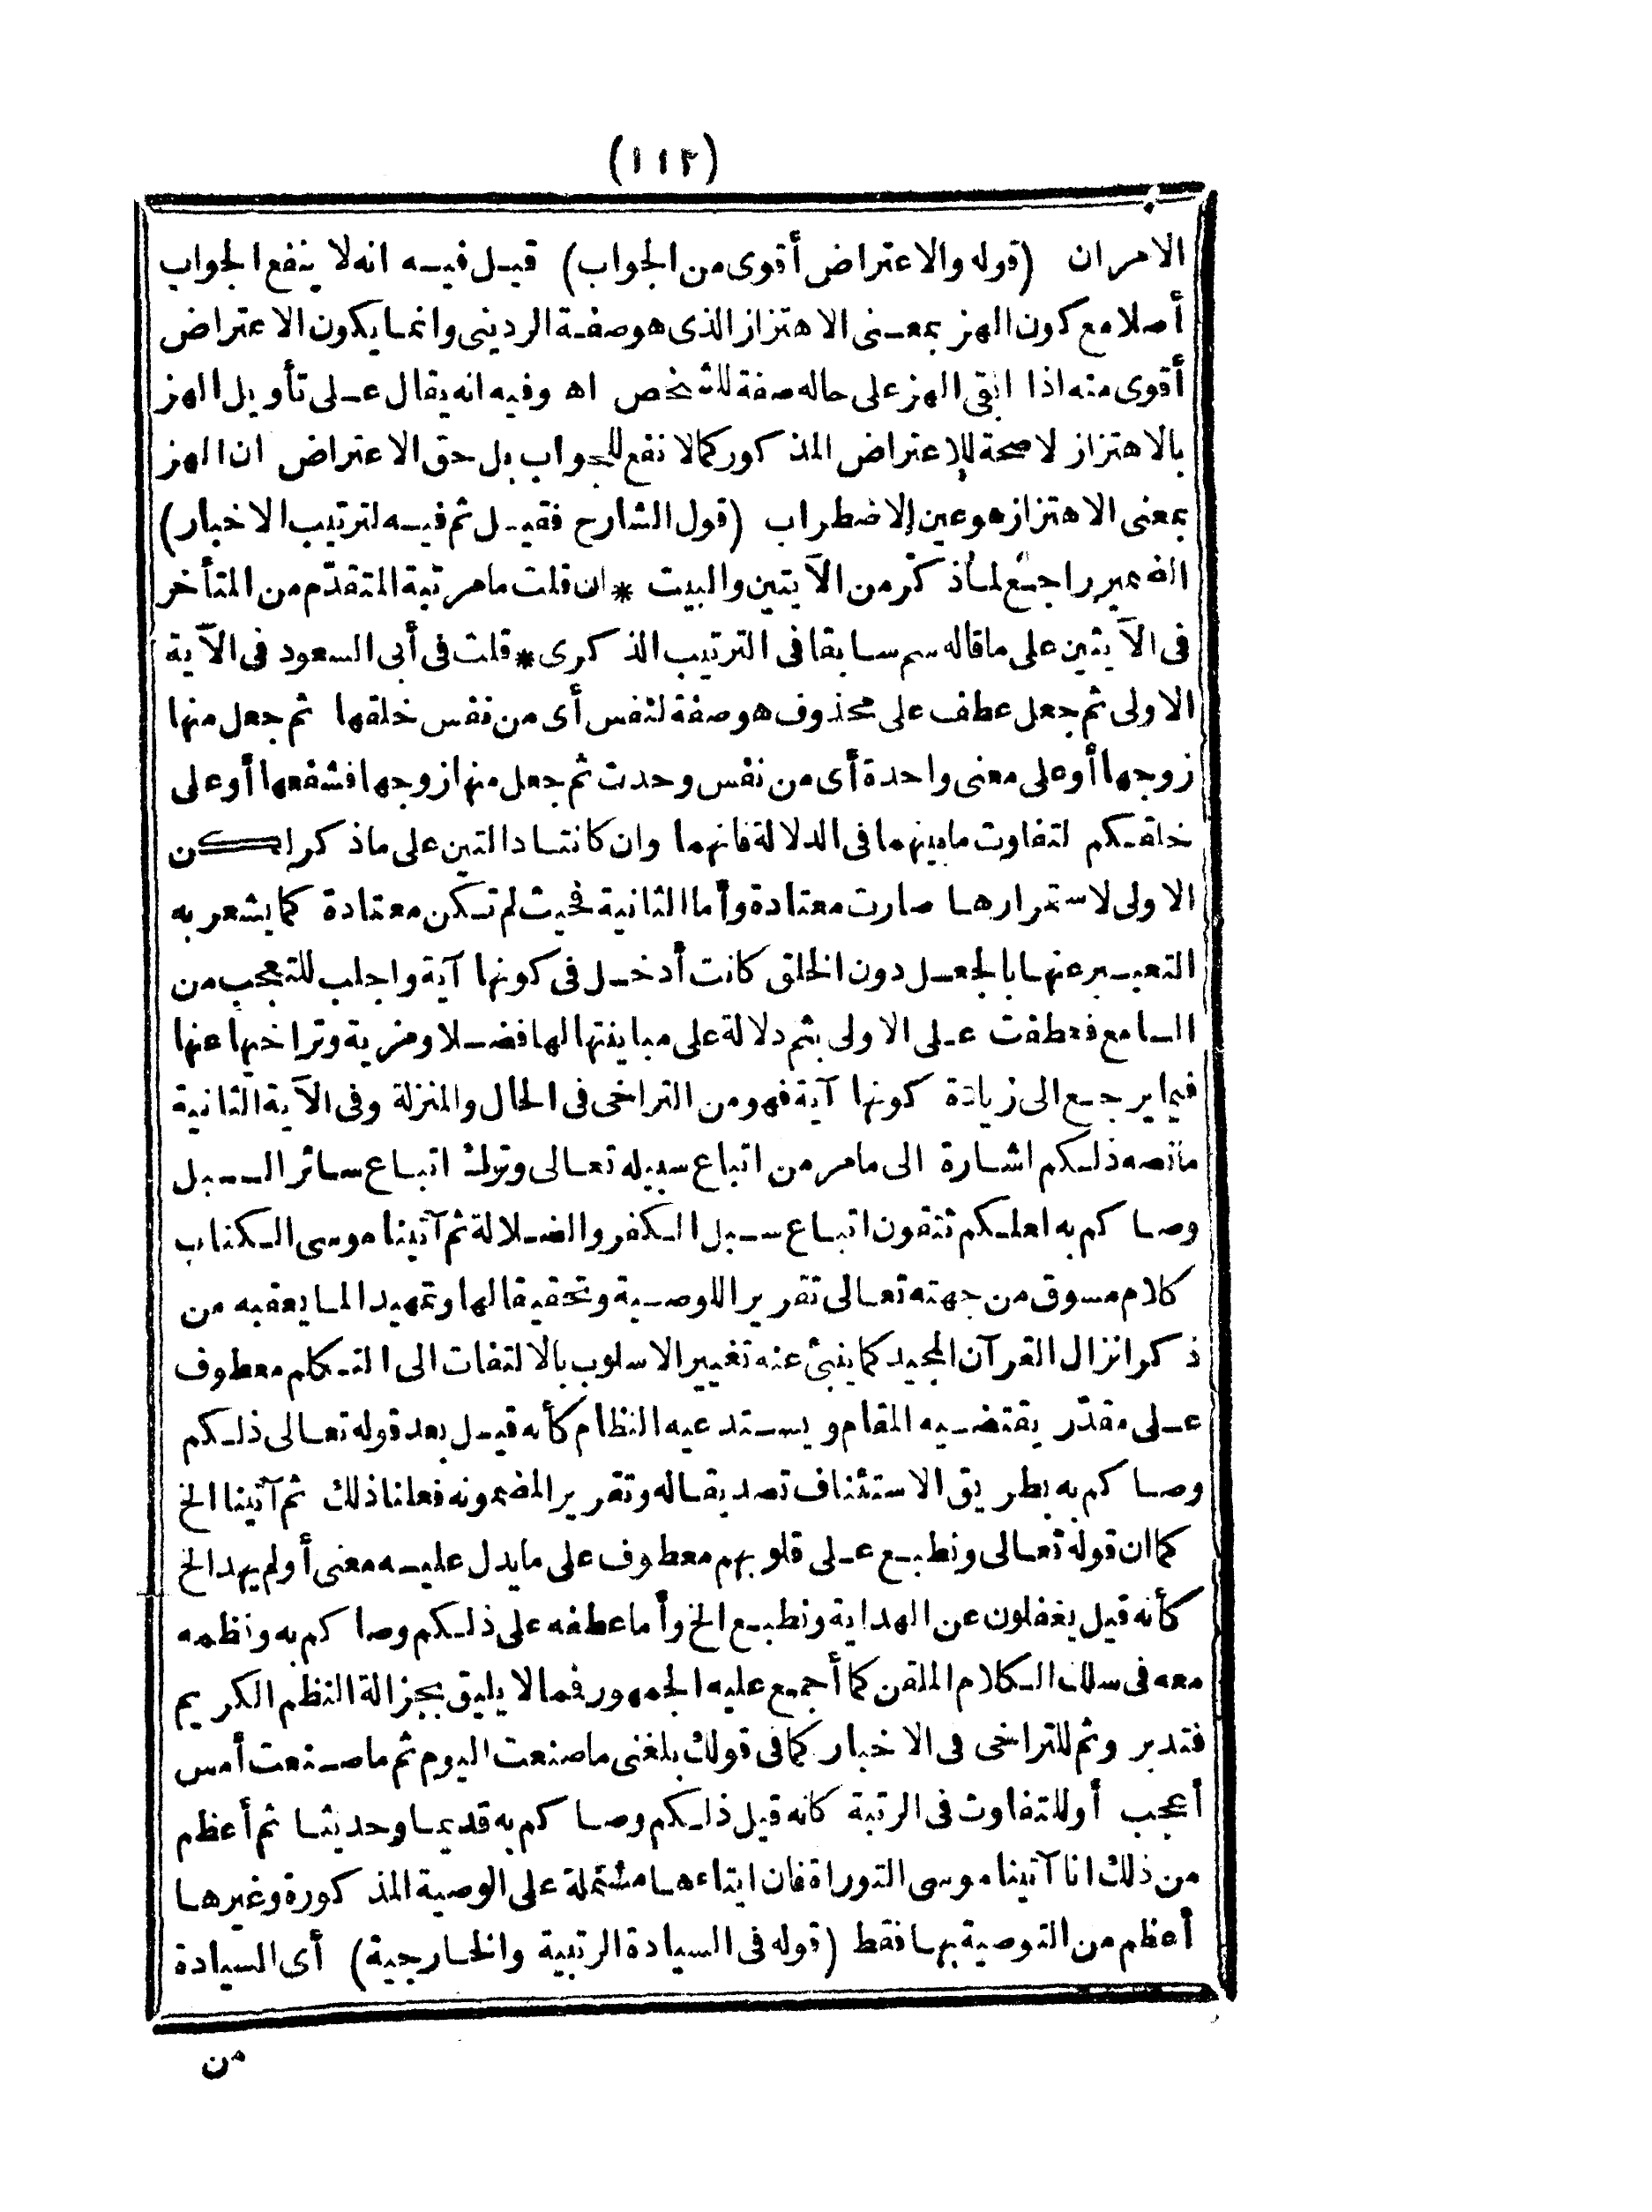 (١١٢)
الامران (قوله والاعتراض أقوى من الجواب) قيل فيه انه لا ينفع الجواب
أصلا مع كون الهز بمعنى الاهتزاز الذى هو صفة الردينى وانما يكون الاعتراض
أقوى منه اذا ابقى الهز على حاله صفة للشخص اه وفيه انه يقال على تأويل الهز
بالاهتزاز لا صحة للاعتراض المذكور كما لا نفع للجواب بل حق الاعتراض ان الهز
بمعنى الاهتزاز هو عين الاضطراب (قول الشارح فقيل ثم فيه لترتيب الاخبار)
الضمير راجع لما ذكر من الآيتين والبيت * ان قلت ما مرتبة المتقدّم من المتأخر
فى الآيتين على ما قاله سم سابقا فى الترتيب الذكرى * قلت فى أبى السعود فى الآية
الاولى ثم جعل عطف على محذوف هو صفة لنفس أى من نفس خلقها ثم جعل منها
زوجها أو على معنى واحدة أى من نفس وحدت ثم جعل منها زوجها فشفعها أو على
خلقكم لتفاوت ما بينهما فى الدلالة فانهما وان كانتا دالتين على ما ذكر لكن
الاولى لاستمرارها صارت معتادة وأما الثانية فحيث لم تكن معتادة كما يشعر به
التعبير عنها بالجعل دون الخلق كانت أدخل فى كونها آية واجلب للتعجب من
السامع فعطفت على الاولى بثم دلالة على مباينتها لها فضلا ومزية وتراخيها عنها
فيما يرجع الى زيادة كونها آية فهو من التراخى فى الحال والمنزلة وفى الآية الثانية
ما نصه ذلكم اشارة الى ما مر من اتباع سبيله تعالى وترك اتباع سائر السبل
وصاكم به لعلكم تتقون اتباع سبل الكفر والضلالة ثم آتينا موسى الكتاب
كلام مسوق من جهته تعالى تقريرا للوصية وتحقيقا لها وتمهيدا لما يعقبه من
ذكر انزال القرآن المجيد كما ينبئ عنه تغيير الاسلوب بالالتفات الى التكلم معطوف
على مقدّر يقتضيه المقام ويستدعيه النظام كأنه قيل بعد قوله تعالى ذلكم
وصاكم به بطريق الاستئناف تصديقا له وتقريرا لمضمونه فعلنا ذلك ثم آتينا الخ
كما ان قوله تعالى ونطبع على قلوبهم معطوف على ما يدل عليه معنى أولم يهد الخ
كأنه قيل يغفلون عن الهداية ونطبع الخ وأما عطفه على ذلكم وصاكم به ونظمه
معه فى سلك الكلام الملقن كما أجمع عليه الجمهور فمما لا يليق بجزالة النظم الكريم
فتدبر وثم للتراخى فى الاخبار كما فى قولك بلغنى ما صنعت اليوم ثم ما صنعت أمس
أعجب أو للتفاوت فى الرتبة كأنه قيل ذلكم وصاكم به قديما وحديثا ثم أعظم
من ذلك انا آتينا موسى التوراة فان ايتاءها مشتملة على الوصية المذكورة وغيرها
أعظم من التوصية بها فقط (قوله فى السيادة الرتبية والخارجية) أى السيادة
من